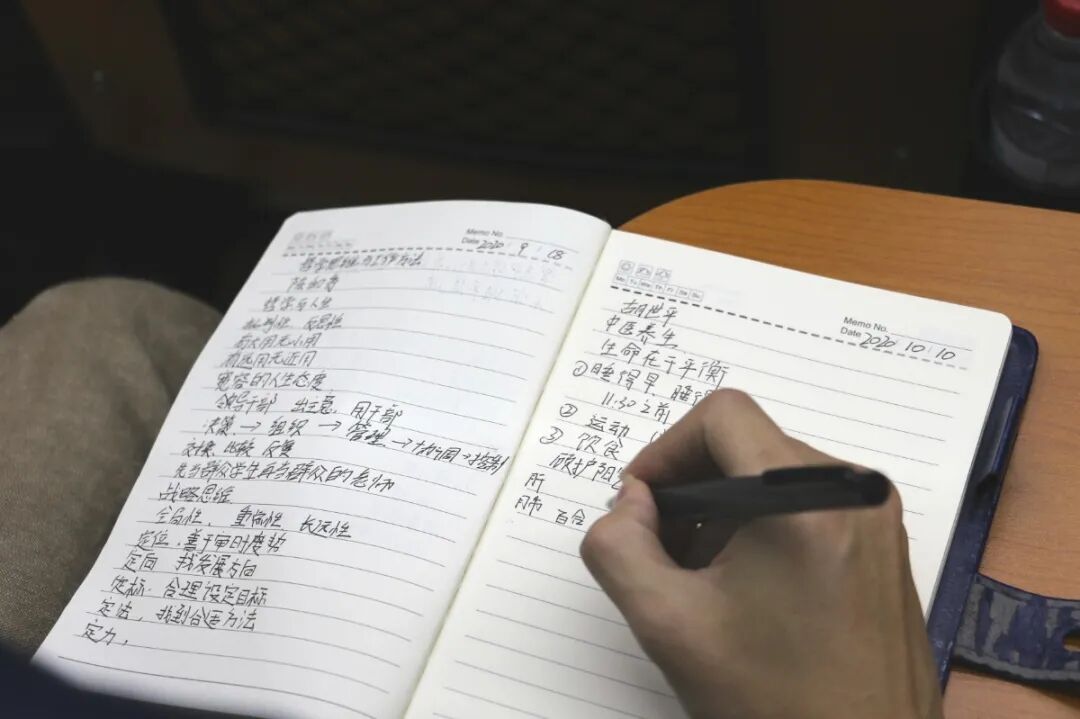 Memo No.
Date 2020 9 08
哲学思维与工作方法
哲学与人生
批判性 反思性
有大用无小用
有远用无近用
宽容的人生态度
领导干部 出主意,用干部
决策→组织→管理→协调→控制
交换、比较、反复
先当群众学生再当群众的老师
战略思维
全局性, 重点性 长远性
定位:善于审时度势
定向 找发展方向
定标:合理设定目标
定法,找到合适方法
定力,
Memo No.
Date 2020 10 10
Mo Tu We Th Fr Sa Su
胡世平
中医养生
生命在于平衡
①睡得早,睡得
11:30之前
② 运动
③ 饮食
破护阳
肝
肺 百合